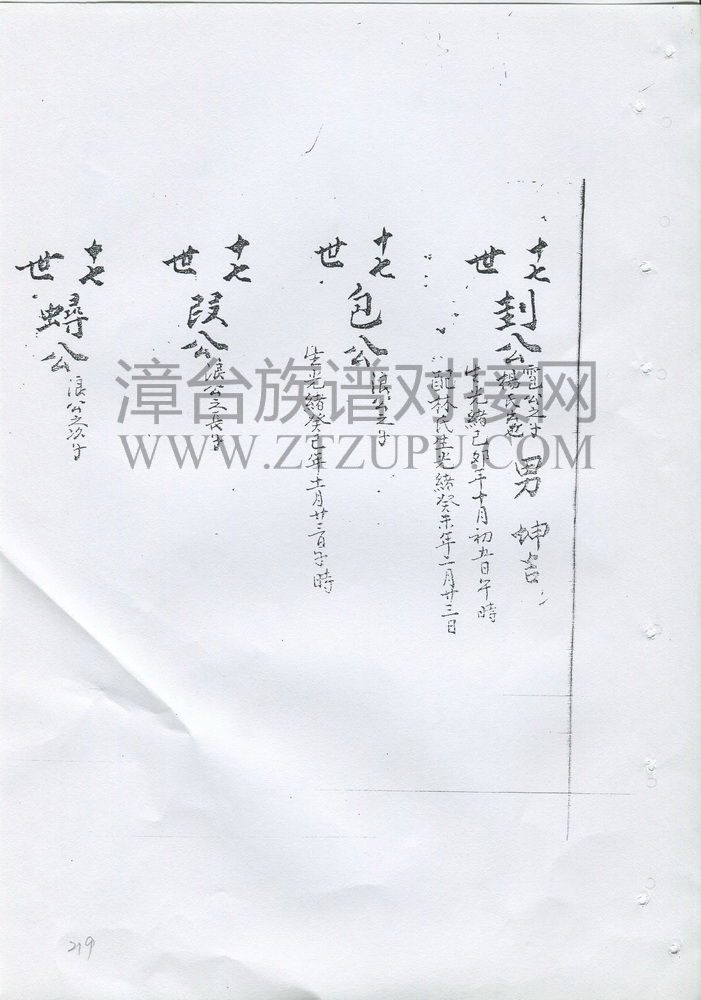 十七世 封公 電公之子
楊氏出 男 坤吉
生光緒己卯年十月初五日午時
配林氏生光緒癸未年二月廿三日
十七世 包公 浪公之子
生光緒癸巳年十二月廿三日子時
十七世 段公 浪公之長子
十七世 蟳公 浪公之次子
漳台族谱对接网
WWW.ZTZUPU.COM
219